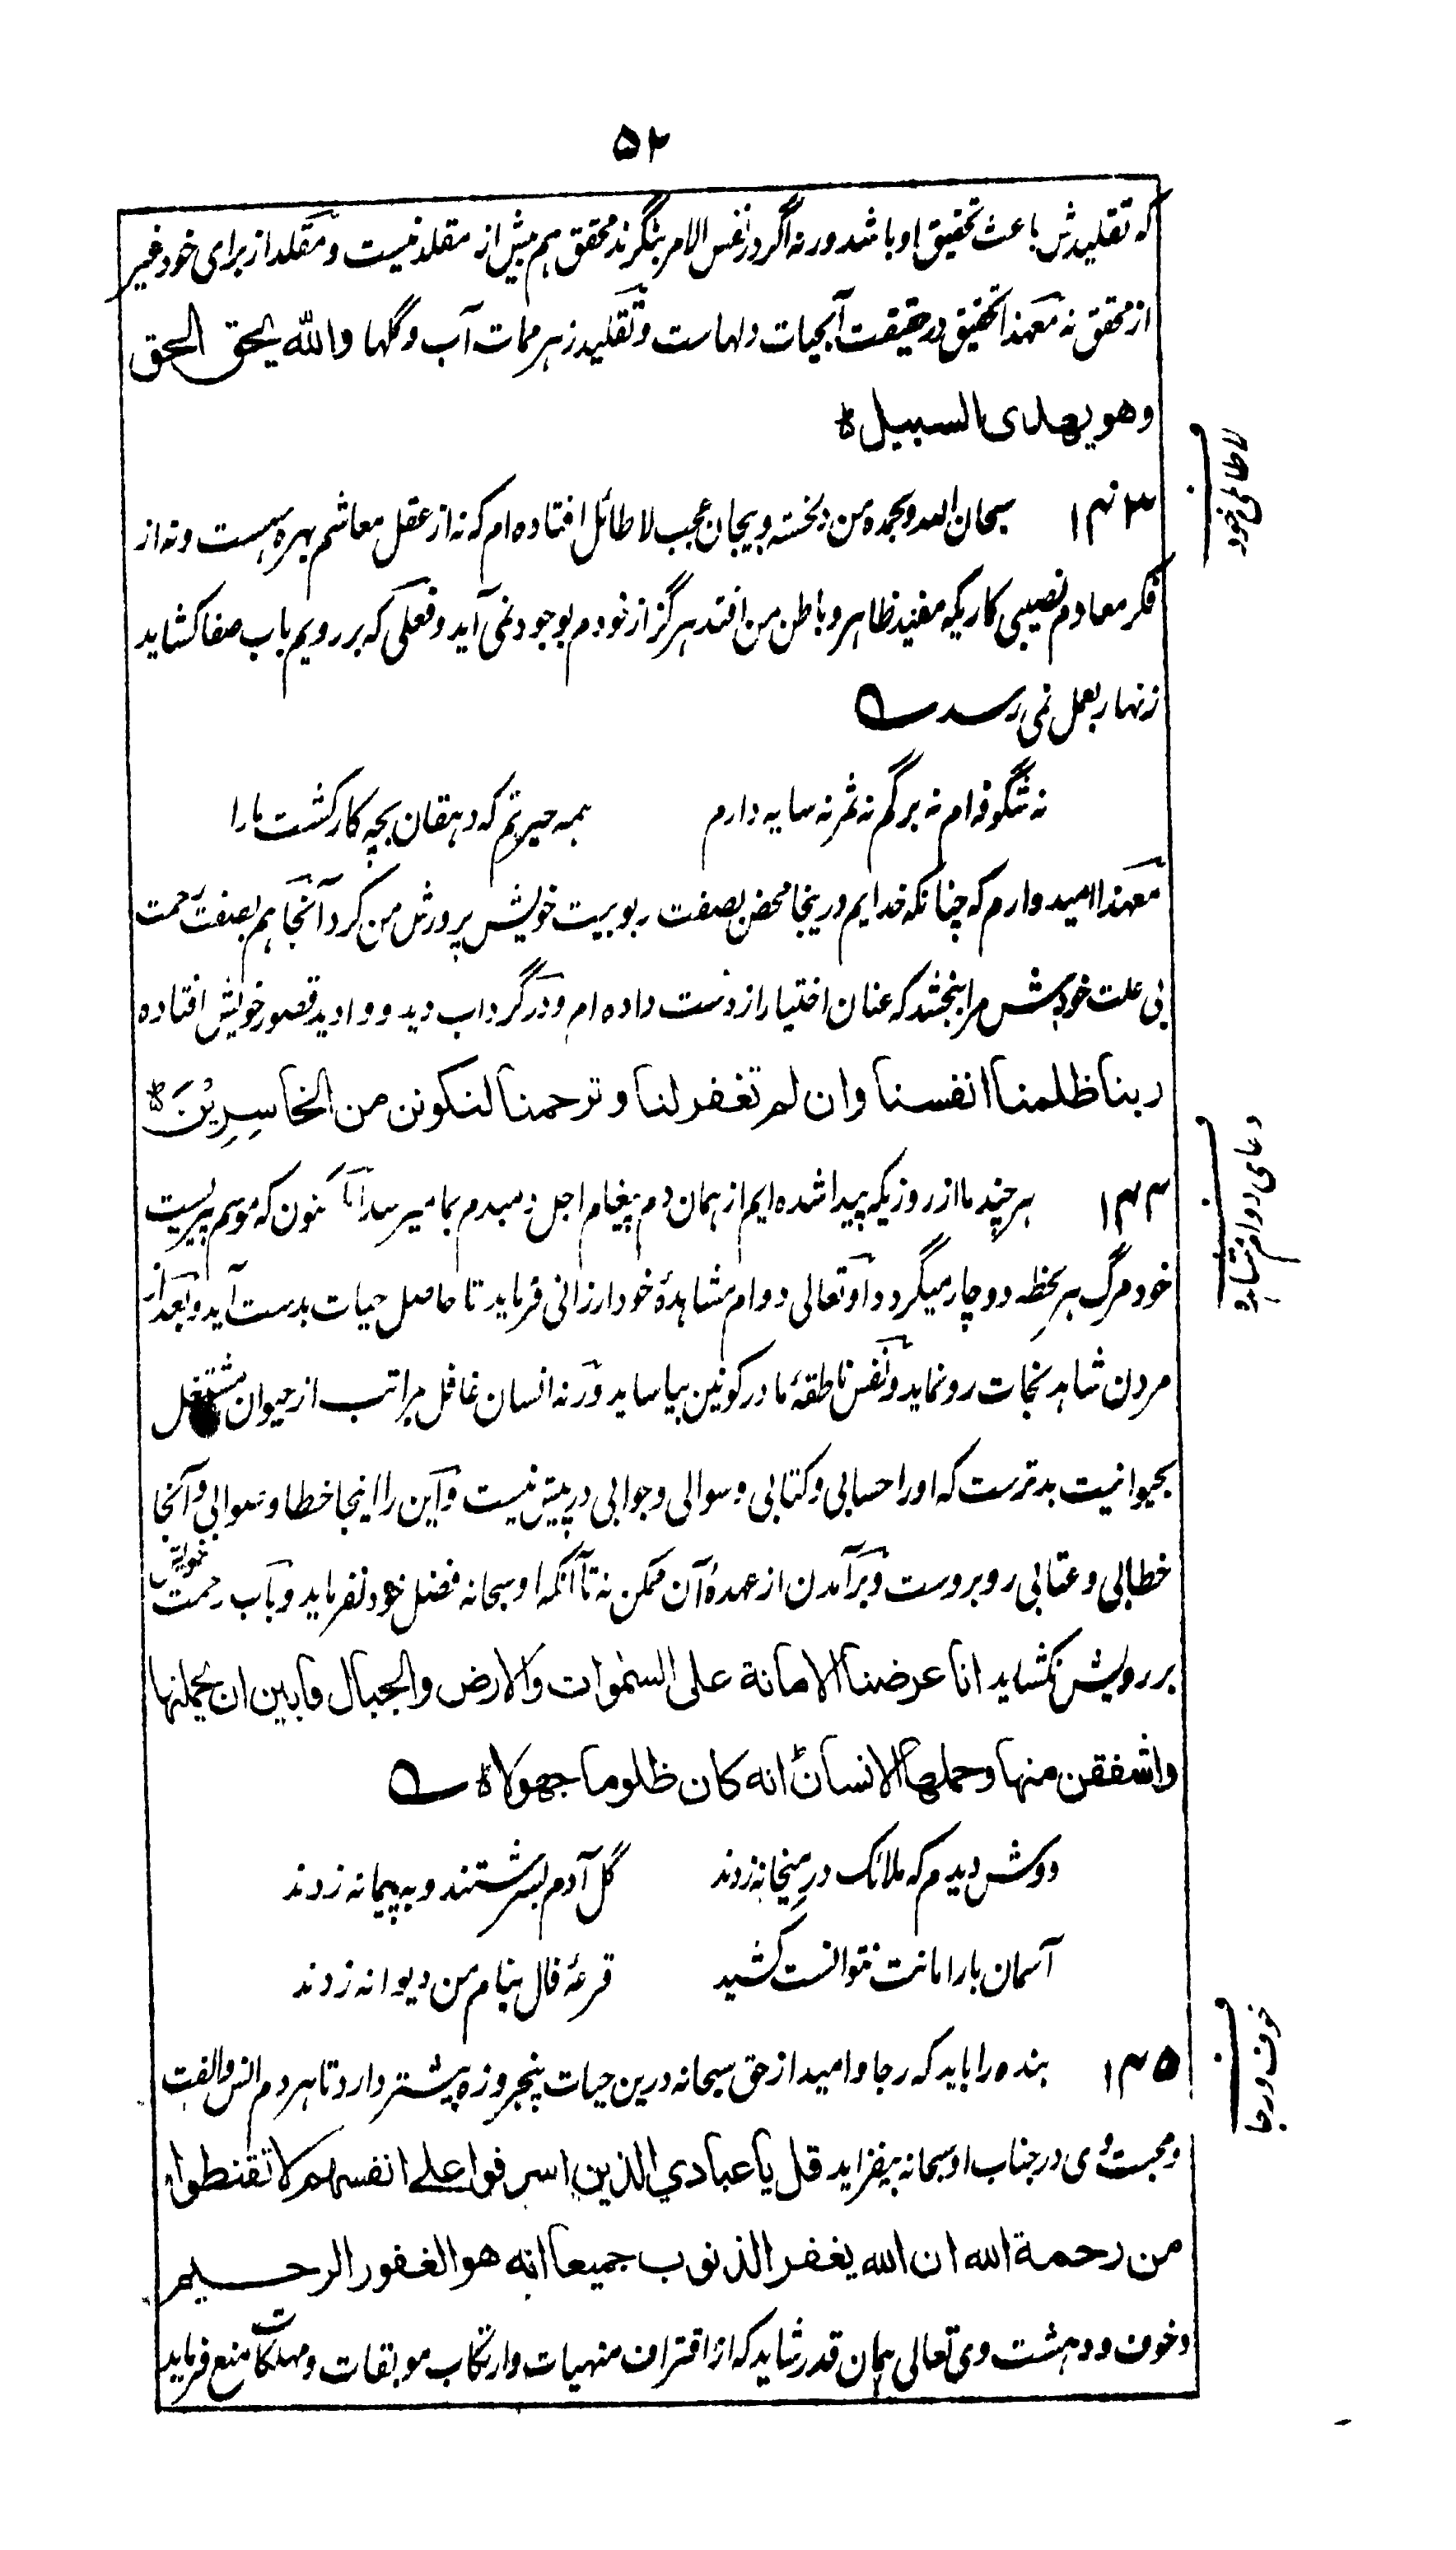 ۵۲
که تقلیدش باعث تحقیق او باشد ورنه اگر در نفس الامر بنگرند محقق هم بیش از مقلد نیست و مقلد از برای خود غیر
از محقق نه معهذا تحقیق در حقیقت آبحیات دلهاست و تقلید زهر ممات آب و گلها والله یحق الحق
وهو یهدی السبیل ه
لاطائلی خود
۱۴۳ سبحان الله وبحمده من دلخسته و بیجان عجب لاطائل افتاده ام که نه از عقل معاشم بهره هست و نه از
فکر معادم نصیبی کاریکه مفید ظاهر و باطن من افتد هرگز از خودم بوجود نمی آید و فعلی که بر رویم باب صفا کشاید
زنهار بعمل نمی رسد
نه شگوفه ام نه برگم نه ثمر نه سایه دارم همه حیرتم که دهقان بچه کار کشت ما را
معهذا امیدوارم که چنانکه خدایم درینجا محض بصفت ربوبیت خویش پرورش من کرد آنجا هم بصفت رحمت
بی علت خودش مرا بخشد که عنان اختیار از دست داده ام و در گرداب دید و وادید قصور خویش افتاده
ربنا ظلمنا انفسنا وان لم تغفر لنا و ترحمنا لنکونن من الخاسِرِیْنَ ه
دعای دوام مشاهده
۱۴۴ هر چند ما از روزیکه پیدا شده ایم از همان دم پیغام اجل دمبدم بما میرسد اما کنون که موسم پیریست
خود مرگ بهر لحظه دوچار میگردد او تعالی دوام مشاهدهٔ خود ارزانی فرماید تا حاصل حیات بدست آید و بعد از
مردن شاهد نجات رو نماید و نفس ناطقهٔ ما در کونین بیاساید ورنه انسان غافل بمراتب از حیوان مشتغل
بحیوانیت بدترست که او را حسابی و کتابی و سوالی و جوابی در پیش نیست و این را اینجا خطا و صوابی و آنجا
خطابی و عتابی روبروست و برآمدن از عهدهٔ آن ممکن نه تا آنکه او سبحانه فضل خود نفرماید و باب رحمت خویش
بر رویش نکشاید انا عرضنا الامانة علی السمٰوات والارض والجبال فابین ان یحملنها
واشفقن منها وحملها الانسان انه کان ظلوما جهولا ه
دوش دیدم که ملائک درِ میخانه زدند گل آدم بسرشتند و به پیمانه زدند
آسمان بار امانت نتوانست کشید قرعهٔ فال بنام من دیوانه زدند
خوف و رجا
۱۴۵ بنده را باید که رجا و امید از حق سبحانه درین حیات پنجروزه پیشتر دارد تا هر دم انس والفت
و محبت وی در جناب او سبحانه بیفزاید قل یا عبادي الذین اسرفوا علے انفسهم لا تقنطوا
من رحمة الله ان الله یغفر الذنوب جمیعا انه هو الغفور الرحیم
و خوف و دهشت وی تعالی همان قدر شاید که از اقتراف منهیات و ارتکاب موبقات و مهلکات منع فرماید